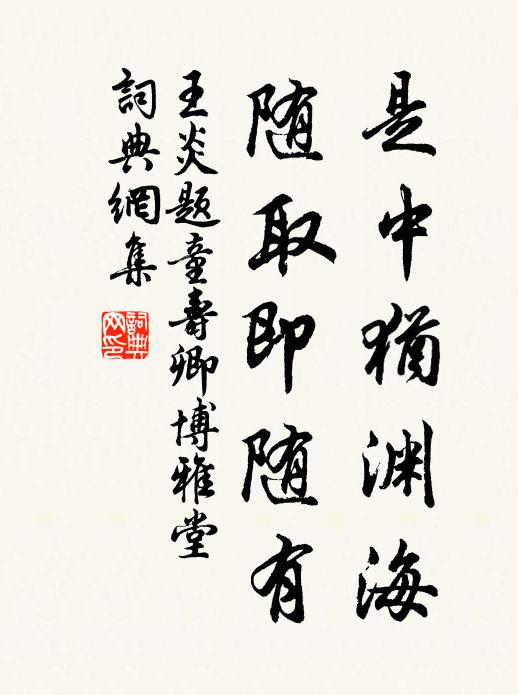 是中猶渊海
随取即随有
王炎题童壽卿博雅堂
詞典網集
詞典网印